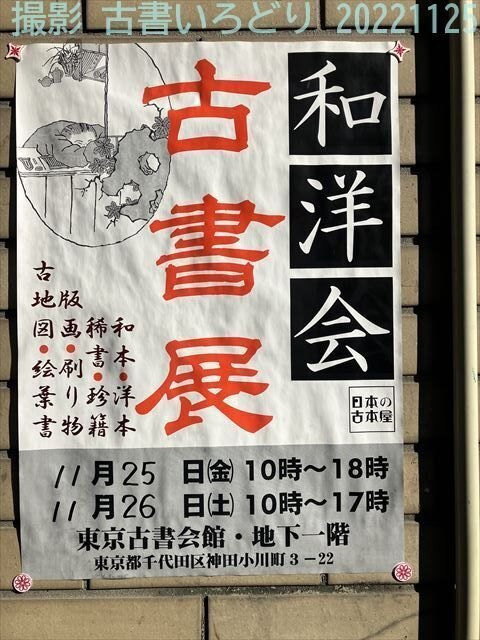 撮影 古書いろどり 20221125
和洋会
古書展
和本・洋本
稀書・珍籍
版画・刷り物
古地図・絵葉書
日本の
古本屋
11月25日㈮ 10時～18時
11月26日㈯ 10時～17時
東京古書会館・地下一階
東京都千代田区神田小川町3－22